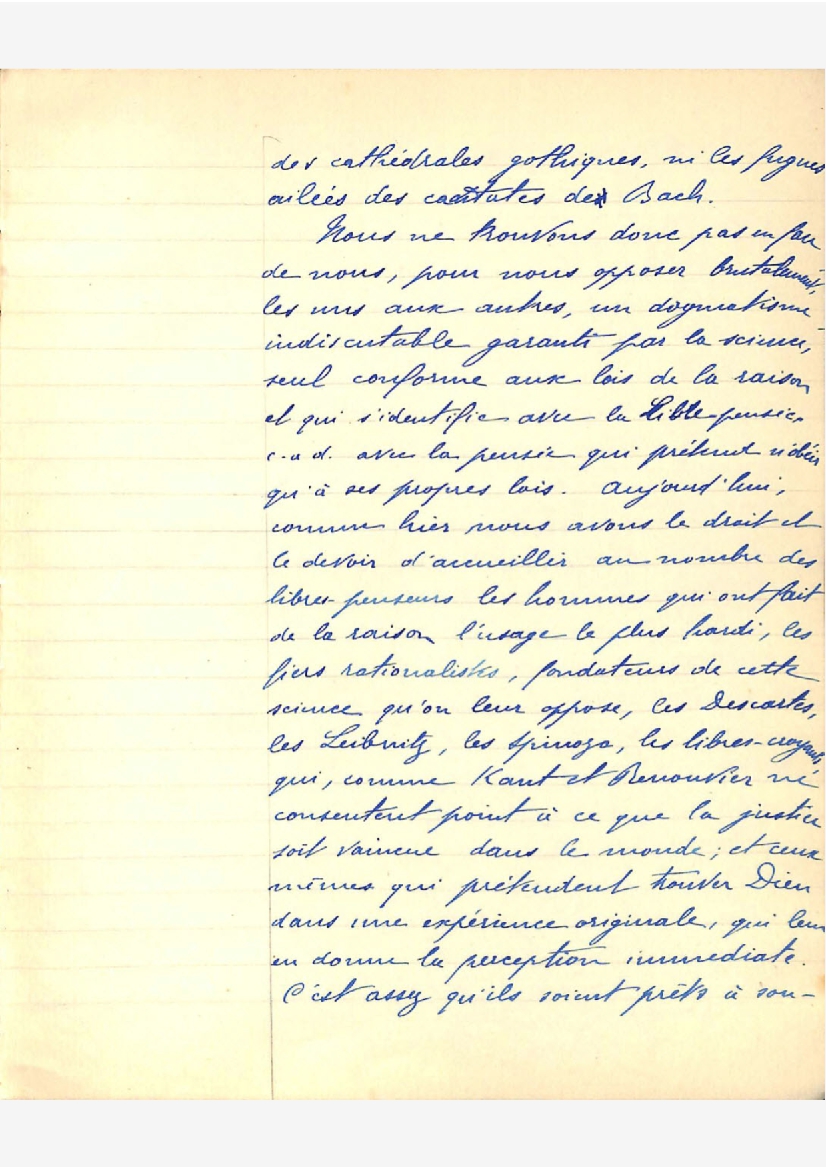 des cathédrales gothiques, ni les fugues
ailées des cantates de Bach.
Nous ne trouvons donc pas en face
de nous, pour nous opposer brutalement,
les uns aux autres, un dogmatisme
indiscutable garanti par la science,
seul conforme aux lois de la raison
et qui s'identifie avec la libre-pensée,
c.a.d. avec la pensée qui prétend n'obéir
qu'à ses propres lois. Aujourd'hui,
comme hier nous avons le droit et
le devoir d'accueillir au nombre des
libres-penseurs les hommes qui ont fait
de la raison l'usage le plus hardi, les
fiers rationalistes, fondateurs de cette
science qu'on leur oppose, les Descartes,
les Leibnitz, les Spinoza, les libres-croyants
qui, comme Kant et Renouvier ne
consentent point à ce que la justice
soit vaincue dans le monde; et ceux
mêmes qui prétendent trouver Dieu
dans une expérience originale, qui leur
en donne la perception immédiate.
C'est assez qu'ils soient prêts à sou-